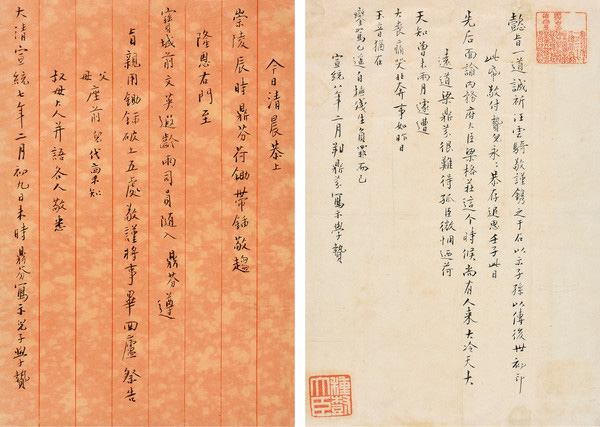 今日清晨恭上
崇陵辰時鼎芬荷鋤帶鍤敬趨
隆恩右門至
寶城前文英遐齡兩司員隨入 鼎芬遵
旨親用鋤鍤破土五處敬謹將事畢回廬祭告
父母座前兒代
叔母大人并語各人敬悉
大清宣統七年二月初九日未時鼎芬寫示兒子學贄
懿旨一道誠祈汪雲騎敬謹鐫之于石以示子孫以傳後世初印
此帋敬付贄兒永恭存追思壬子此日
先后面諭內務府大臣梁格莊這個時候尚有人來大冷天大
遠道梁鼎芬很難得孤臣微悃迺荷
天知曾未兩月遽遭
大喪痛哭北奔事如昨日
玉音猶在
鑾馭已遠自撫殘生負罪而已
宣統八年二月朔鼎芬寫示學贄
種樹大臣